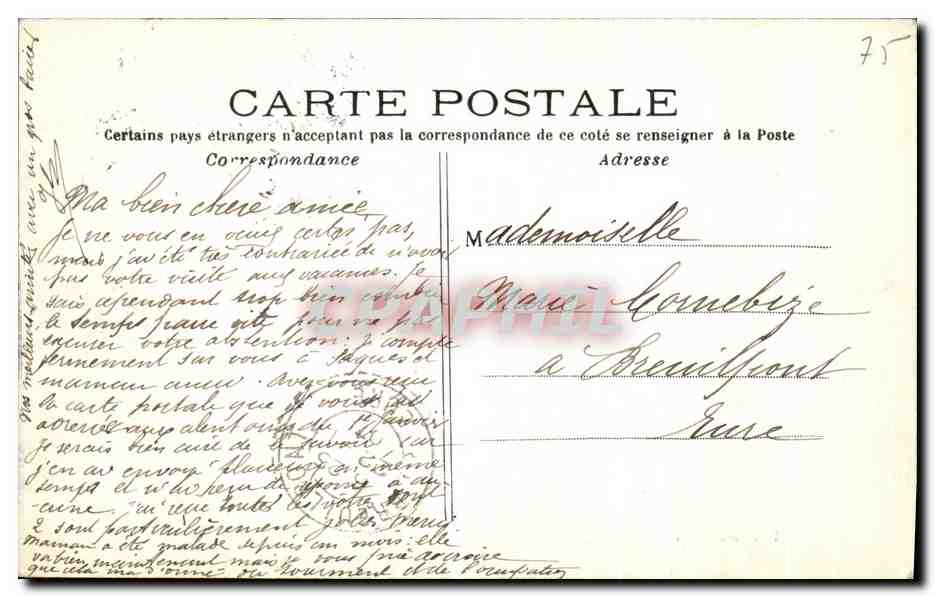 75
CARTE POSTALE
Certains pays étrangers n'acceptant pas la correspondance de ce coté se renseigner à la Poste
Correspondance
Adresse
Ma bien chère amie
Je ne vous en veux certes pas,
mais j'ai été très contrariée de n'avoir
pas votre visite aux vacances. Je
sais cependant trop bien combien
le temps passe vite pour ne pas
excuser votre abstention: je compte
fermement sur vous à Pâques et
maman aussi. Avez-vous reçu
la carte postale que je vous ai
adressée aux alentours du 1er janvier
je serais bien aise de le savoir car
j'en ai envoyé plusieurs en même
temps et n'ai reçu de réponse à au-
cune. J'ai reçu toutes les vôtres dont
2 sont particulièrement jolies, merci
Maman a été malade depuis un mois: elle
va bien maintenant mais je vous prie de croire
que cela m'a donné du tourment et de l'occupation
Nos meilleures amitiés avec un gros baiser
Mademoiselle
Marie Cornebize
à Breuilpont
Eure
CPAPHIL